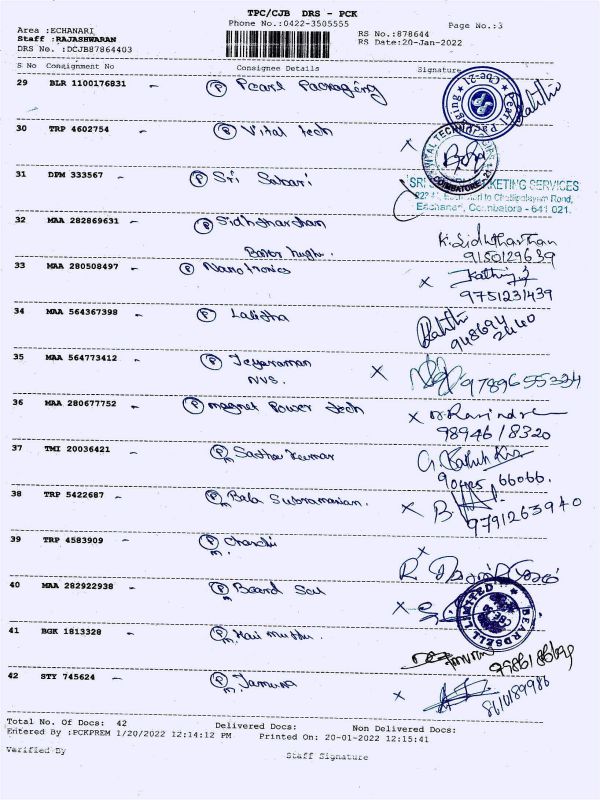 TPC/CJB DRS - PCK
Phone No.:0422-3505555
Page No.:3
Area :ECHANARI
Staff :RAJASHWARAN
DRS No. :DCJB87864403
RS No.:878644
RS Date:20-Jan-2022
S No Consignment No Consignee Details Signature
29 BLR 1100176831 - P Pearl Packaging
30 TRP 4602754 - P Vital tech
31 DPM 333567 - P Sri Sabari
SRI MARKETING SERVICES
Echanari, Coimbatore - 641 021.
32 MAA 282869631 - P Sidhtharthan
K. Sidhtharthan
9150129639
33 MAA 280508497 - P Nanotronics
9751231439
34 MAA 564367398 - P Lalitha
Lalitha
948694
2440
35 MAA 564773412 - P Jeyaraman
NVS.
9789655324
36 MAA 280677752 - P magnet Power tech
9894618320
37 TMI 20036421 - P Sasthakumar
66066.
38 TRP 5422687 - P Bala Subramanian.
9791263940
39 TRP 4583909 - P
40 MAA 282922938 - P Beard Sell
BEARDSELL LIMITED
41 BGK 1813328 - P Hari Muthu.
42 STY 745624 - P Jamuna
8610189986
Total No. Of Docs: 42 Delivered Docs: Non Delivered Docs:
Entered By :PCKPREM 1/20/2022 12:14:12 PM Printed On: 20-01-2022 12:15:41
Verified By Staff Signature